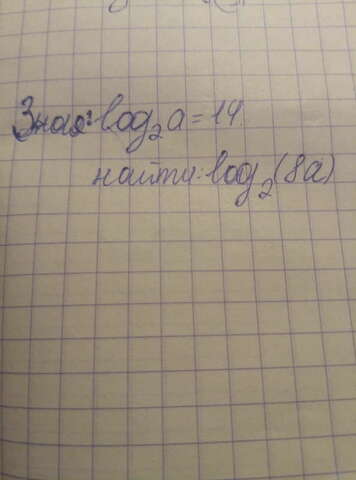 Зная: log₂a = 14.
найти: log₂(8a)